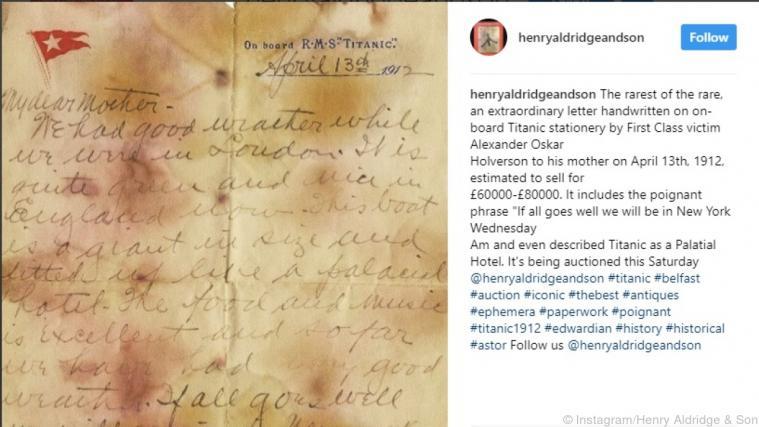 On board R.M.S "TITANIC".
April 13th 1912
My dear Mother-
We had good weather while
we were in London. It is
quite green and nice in
England now. This boat
is a giant in size and
fitted up like a palacial
hotel. The food and music
is excellent and so far
we have had very good
weather. If all goes well
henryaldridgeandson
Follow
henryaldridgeandson The rarest of the rare,
an extraordinary letter handwritten on on-
board Titanic stationery by First Class victim
Alexander Oskar
Holverson to his mother on April 13th, 1912,
estimated to sell for
£60000-£80000. It includes the poignant
phrase "If all goes well we will be in New York
Wednesday
Am and even described Titanic as a Palatial
Hotel. It's being auctioned this Saturday
@henryaldridgeandson #titanic #belfast
#auction #iconic #thebest #antiques
#ephemera #paperwork #poignant
#titanic1912 #edwardian #history #historical
#astor Follow us @henryaldridgeandson
© Instagram/Henry Aldridge & Son